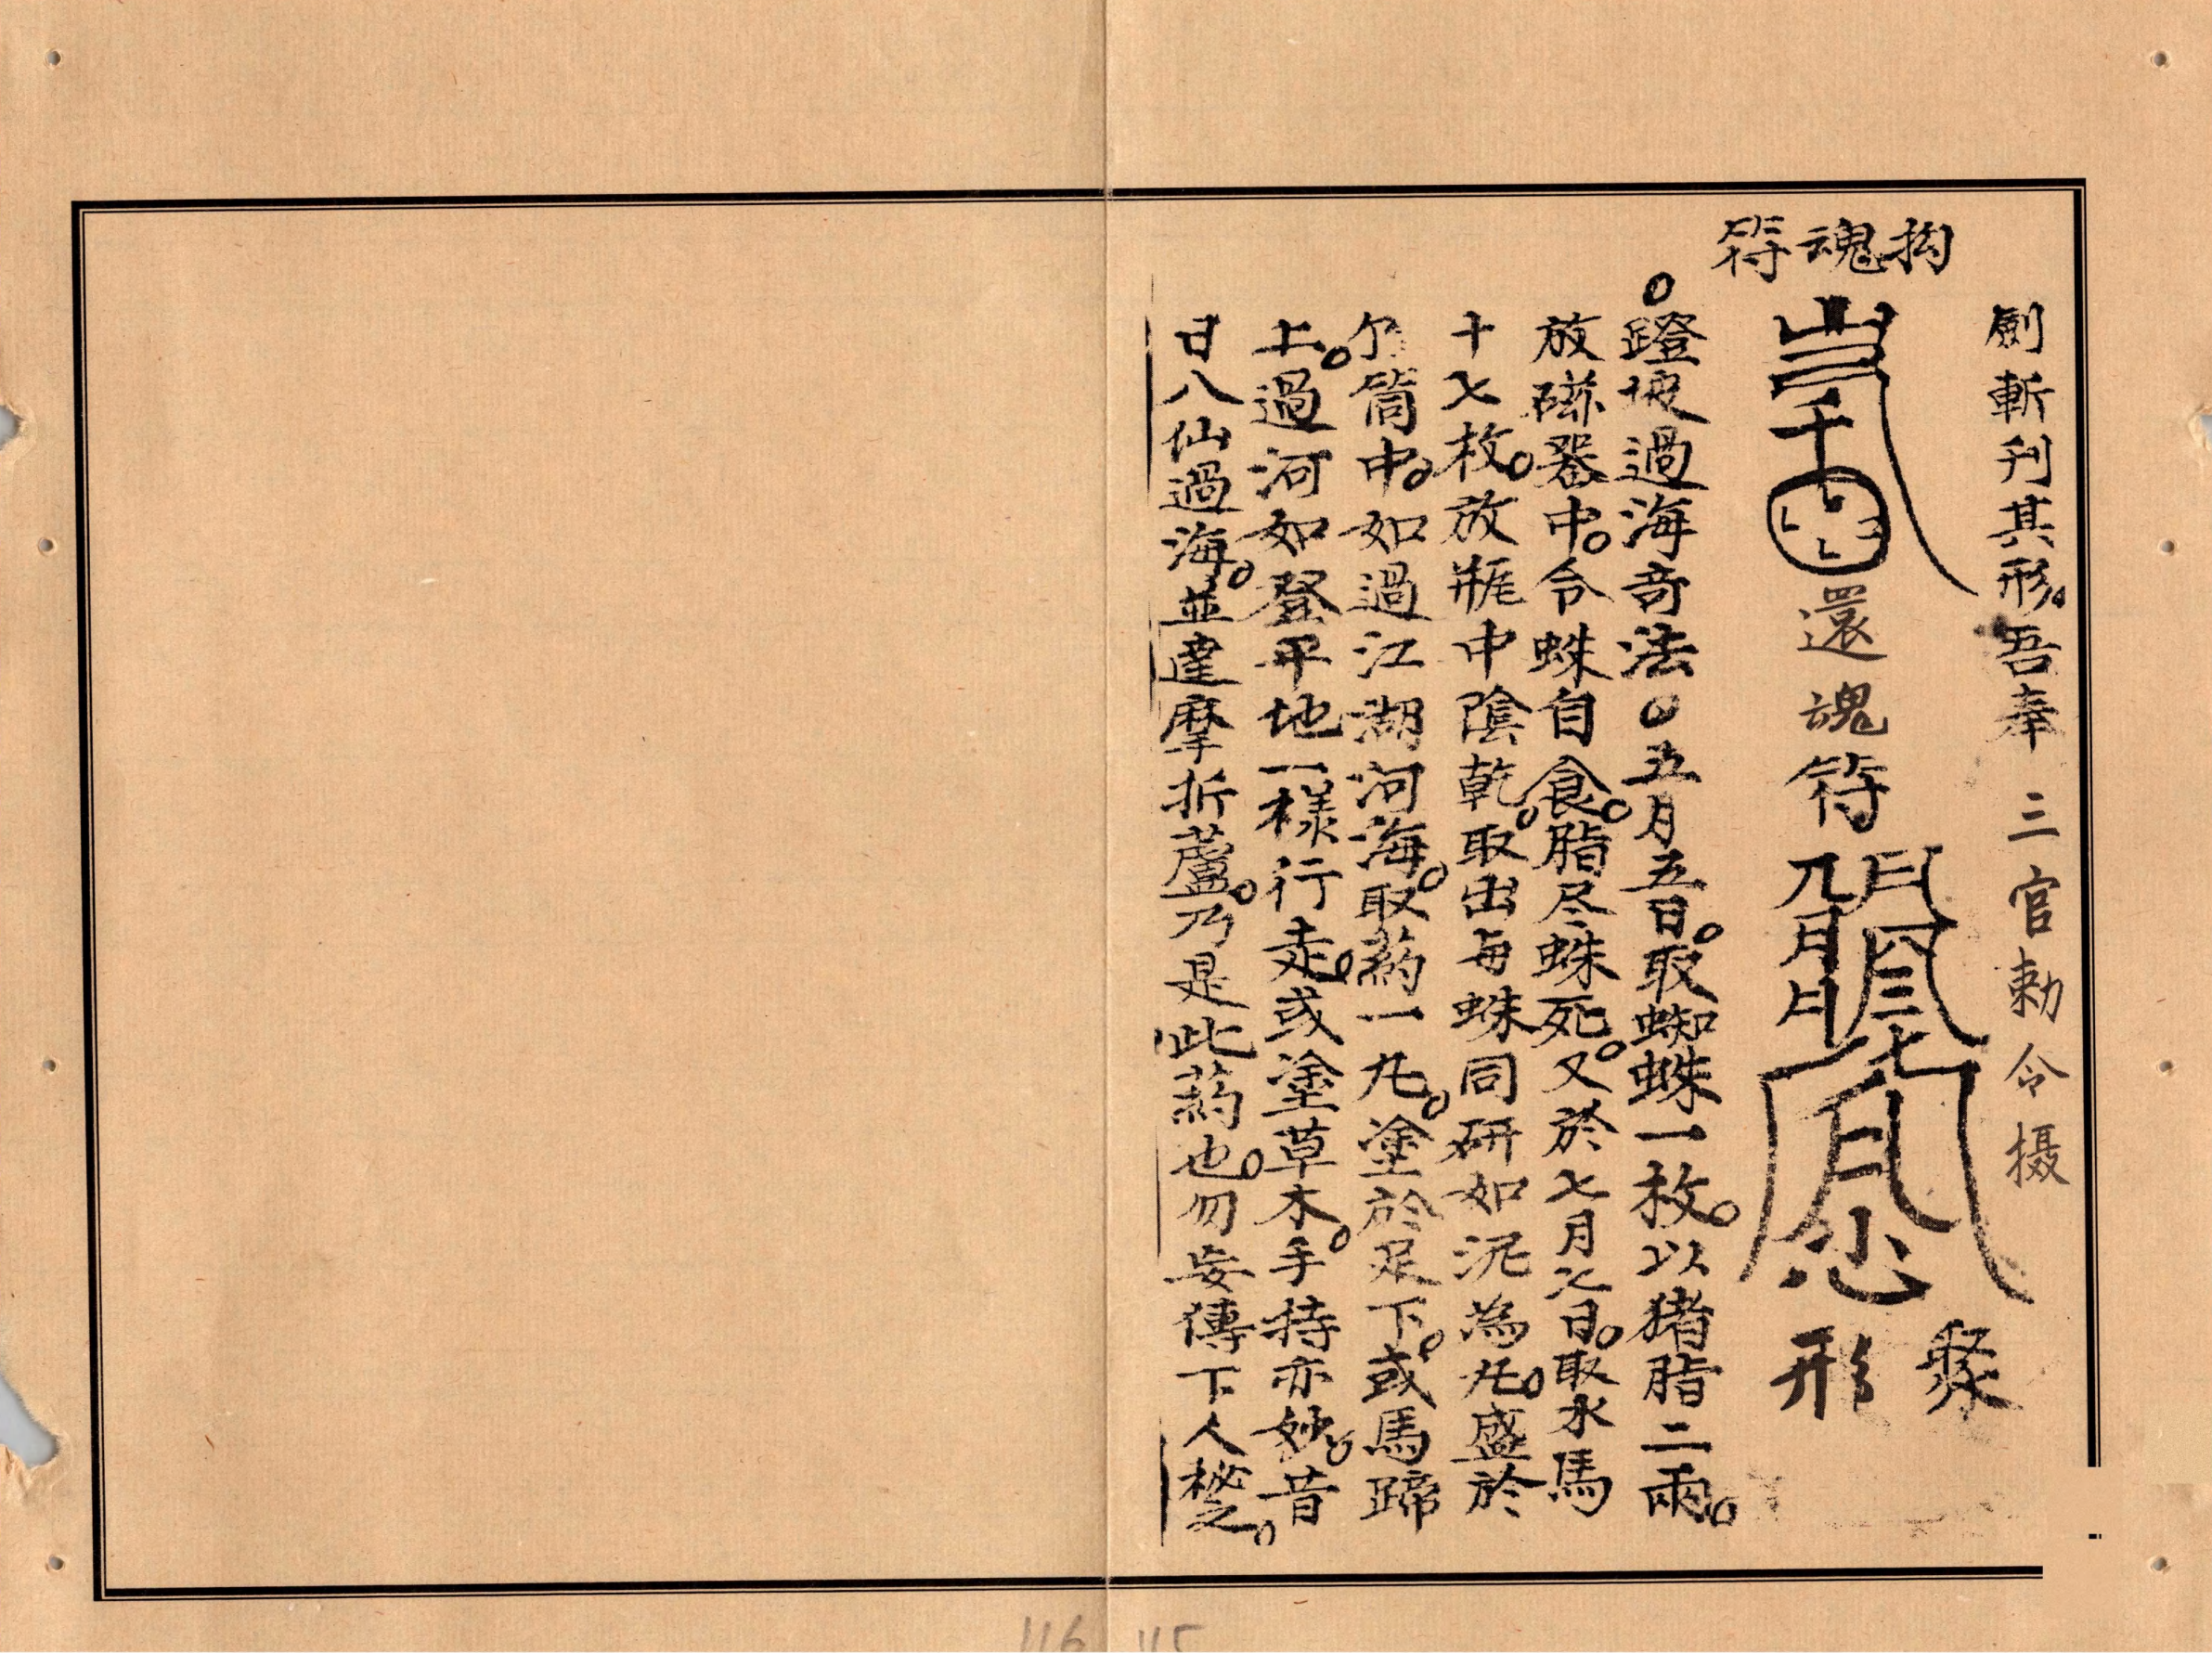 劍斬刊其形。吾奉三官勅令摄
抅魂符
還魂符
聚形
○蹬坡過海竒法○五月五日。取蜘蛛一枚。以猪脂二兩。
放磁器中。令蛛自食。脂尽蛛死。又於七月七日。取水馬
十七枚。放瓶中陰乾。取出每蛛同研如泥為丸。盛於
筒中。如過江湖河海。取葯一丸。塗於足下。或馬蹄
上。過河如登平地一樣行走。或塗草木。手持亦妙。昔
日八仙過海。並達摩折蘆。乃是此葯也。勿妄傳下人秘之。
116 115